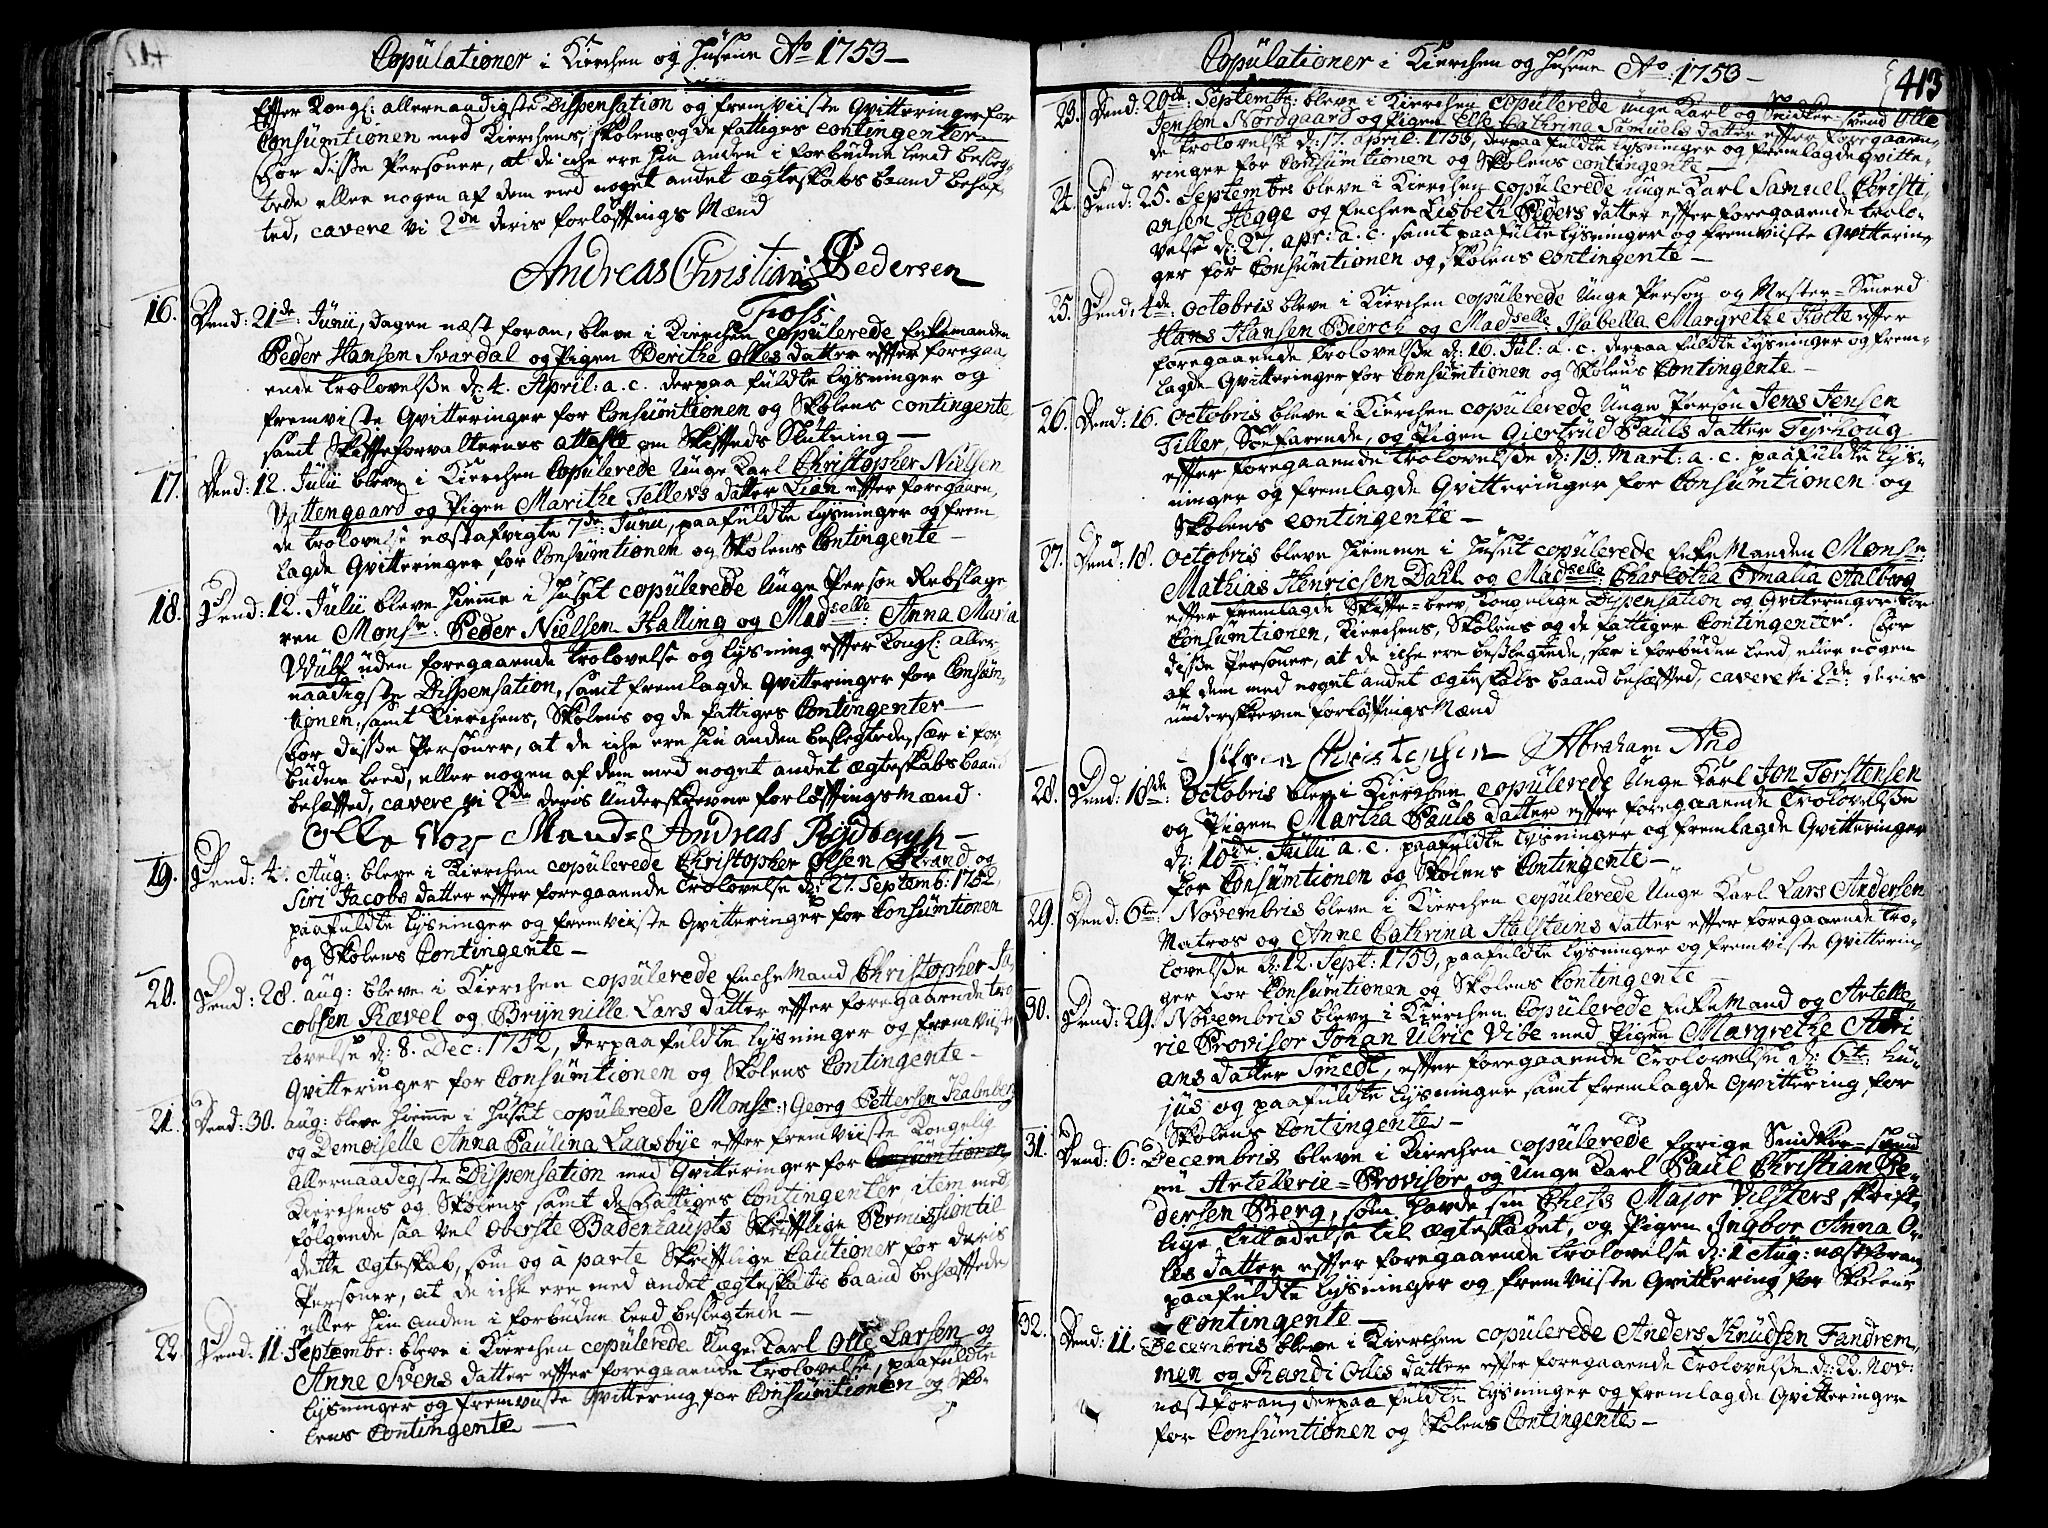 Copulationer i Kierchen og Husene Ao 1753
Effter Kongl: allernaadigste Dispensation og fremviiste Qvitteringer for
Consumtionen med Kierchens, Skolens og de fattiges Contingenter
For disse Personer, at de iche ere hin anden i forbudne Leed beslög-
tede eller nogen af dem med noget andet Ægteskabs baand behæf-
ted, cavere vi 2de deris forlöfftings Mænd
Andreas Christian Pedersen
Foss
16. Dend: 21de: Junii, dagen næst foran, bleve i Kierchen copulerede Enkemanden
Peder Hansen Svardal og Pigen Berithe Olles datter effter foregaa
ende trolovelse d: 4. April: a. c. derpaa fuldte Lysninger og
fremviste Qvitteringer for Consumtionen og Skolens contingente,
samt Skifteforvalternes atteste om Skifteds Slutning
17. Dend: 12. Julii bleve i Kierchen Copulerede Unge Karl Christopher Nielsen
Vittengaard og Pigen Marithe Tellers datter Lian effter foregaaen
de trolovelse næstafvigte 7de: Junii, paafuldte Lysninger og frem
lagde Qvitteringer for Consumtionen og Skolens Contingente
18. Dend: 12. Julii bleve hieme i Huset copulerede Unge Person Rebslage
ren Monsr: Peder Nielsen Halling og Madselle: Anna Maria
Wulf uden foregaaende trolovelse og Lysning effter Kongl: aller-
naadigste Dispensation, samt fremlagde Qvitteringer for Consum-
tionen, samt Kierchens, Skolens og de fattiges Contingenter
For disse Personer, at de iche ere hin anden beslegtede, sær i for
budne leed, eller nogen af dem med noget andet Ægteskabs baand
behæfted, cavere vi 2de deris Underskrevne forlöfftings Mænd.
Andreas Rydbergh
19. Dend: 4. Aug: bleve i Kierchen copulerede Christopher Olsen Strand og
Siri Jacobs datter effter foregaaende trolovelse d: 27. Septemb: 1752,
paafuldte Lysninger og fremviiste Qvitteringer for Consumtionen
og Skolens Contingente
20. Dend: 28. aug: bleve i Kierchen copulerede Encke Mand Christopher Ja-
cobsen Rævel og Brynnille Lars datter effter foregaaende tro
lovelse d: 8. Dec: 1752, derpaafuldte Lysninger og fremviiste
Qvitteringer for Consumtionen og Skolens Contingente
21. Dend: 30. aug: bleve hieme i Huset copulerede Monsr: Georg Pettersen Kalmberg
og Demoiselle Anna Paulina Laasbye effter fremviiste Kongelig
allernaadigste Dispensation med Qvitteringer for Consumtionen
Kierchens og Skolens samt de Fattiges Contingenter, item med
fölgende saa vel Oberste Badenhaupts Skrifflige Permission til
dette ægteskab, som og à parte Skrifflige Cautioner for deris
Personer, at de ickke ere med andet ægteskabs baand behæfftede
eller hin anden i forbudne leed beslegtede
22. Dend: 11. Septembr: bleve i Kierchen copulerede Unge Karl Olle Larsen og
Anne Svens datter effter foregaaende Trolovelse, paafuldte
Lysninger og fremviiste Qvittering for Consumtionen og Sko-
lens Contingente
Copulationer i Kierchen og Husene Ao: 1753
413
23. Dend: 20de: Septembr: bleve i Kierchen copulerede Unge Karl og Snidker-svend Olle
Jensen Nordgaard og Pigen Else Cathrina Samuels datter effter foregaaen
de trolovelse d: 17. april: 1753, derpaa fuldte Lysninger og fremlagde Qvitte-
ringer for Consumtionen og Skolens Contingente
24. Dend: 25. Septembr bleve i Kierchen copulerede Unge Karl Samuel Christi-
ansen Hegge og Enchen Lisbeth Peders datter effter foregaaende trolo-
velse d: 27. apr: a. c. samt paafulte Lysninger og fremviiste Qvitterin-
ger for Consumtionen og Skolens Contingente
25. Dend: 4de octobris bleve i Kierchen copulerede Unge Person og Mester-Smeed
Hans Hansen Bierch og Madselle: Isabella Margrethe Holte effter
foregaaende trolovelse d: 10. Jul: a. c. derpaa fuldte Lysninger og frem-
lagde Qvitteringer for Consumtionen og Skolens Contingente
26. Dend: 16. octobris bleve i Kierchen copulerede Unge Person Jens Jensen
Tiller, Söefarende, og Pigen Giertrud Pauls datter Tyrhoug
effter foregaaende trolovelse d: 19. Mart: a. c. paafuldte Lys-
ninger og fremlagde Qvitteringer for Consumtionen og
Skolens Contingente
27. Dend: 18. octobris bleve hiemme i Huset copulerede Enke Manden Monsr:
Mathias Henricsen Dahl og Madselle: Charlotha Amalia Aalborg
effter fremlagde Skifte-brev, Kongelige Dispensation og Qvitteringer for
Consumtionen, Kierchens, Skolens og de fattiger Contingenter. For
disse Personer, at de iche ere beslegtede, sær i forbuden leed, eller nogen
af dem med noget andet ægteskabs baand behæffted, cavere vi 2de: deris
underskrevne forlöfftings Mænd
Christensen Abraham And
28. Dend: 18de: Octobris blev i Kierchen copulerede Unge Karl Jon Torstensen
og Pigen Martha Pauls datter effter foregaaende Trolovelse
d: 10de: Julii a. c. paafuldte Lysninger og fremlagde Qvitteringer
for Consumtionen og Skolens Contingente
29. Dend: 6te: Novembris bleve i Kierchen copulerede Unge Karl Lars Andersen
Matros og Anne Cathrina Halsteins datter effter foregaaende tro-
lovelse d: 12. Sept: 1753, paafuldte Lysninger og fremviste Qvitterin-
ger for Consumtionen og Skolens Contingente
30. Dend: 29. Novembris bleve i Kierchen Copulerede Enke Mand og Artelle-
rie Provisor Johan Ulric Vibe med Pigen Margrethe Adri
ans datter Smedt, effter foregaaende Trolovelse d: 6t: hu-
jus og paafuldte Lysninger samt fremlagde Qvittering for
Skolens Contingente
31. Dend: 6: Decembris bleve i Kierchen copulerede forige Snidker-svend
nu Artellerie-Provisor og Unge Karl Paul Christian Pe-
dersen Berg, som havde sin Chefs Major Vilsters skrift-
lige tilladelse til ægteskabet, og Pigen Ingbor Anna O-
les datter effter foregaaende trolovelse d: 1 Aug: næstforan
paafuldte Lysninger og fremviiste Qvittering for Skolens
Contingente
32. Dend: 11. Decembris bleve i Kierchen copulerede Anders Knudsen Fandrem-
men og Randi Olles datter effter foregaaende Trolovelse d: 22. Nov:
næstforan, derpaa fuldte Lysninger og fremlagde Qvitteringer
for Consumtionen og Skolens Contingente